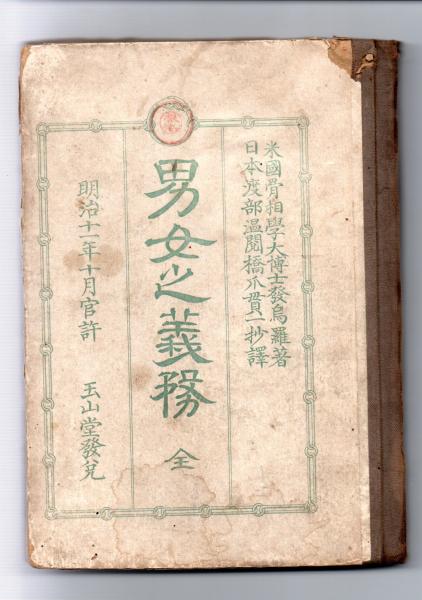 米國骨相學大博士發烏羅著
日本渡部温閲橋爪貫一抄譯
男女之義務 全
明治十一年十月官許 玉山堂發兌